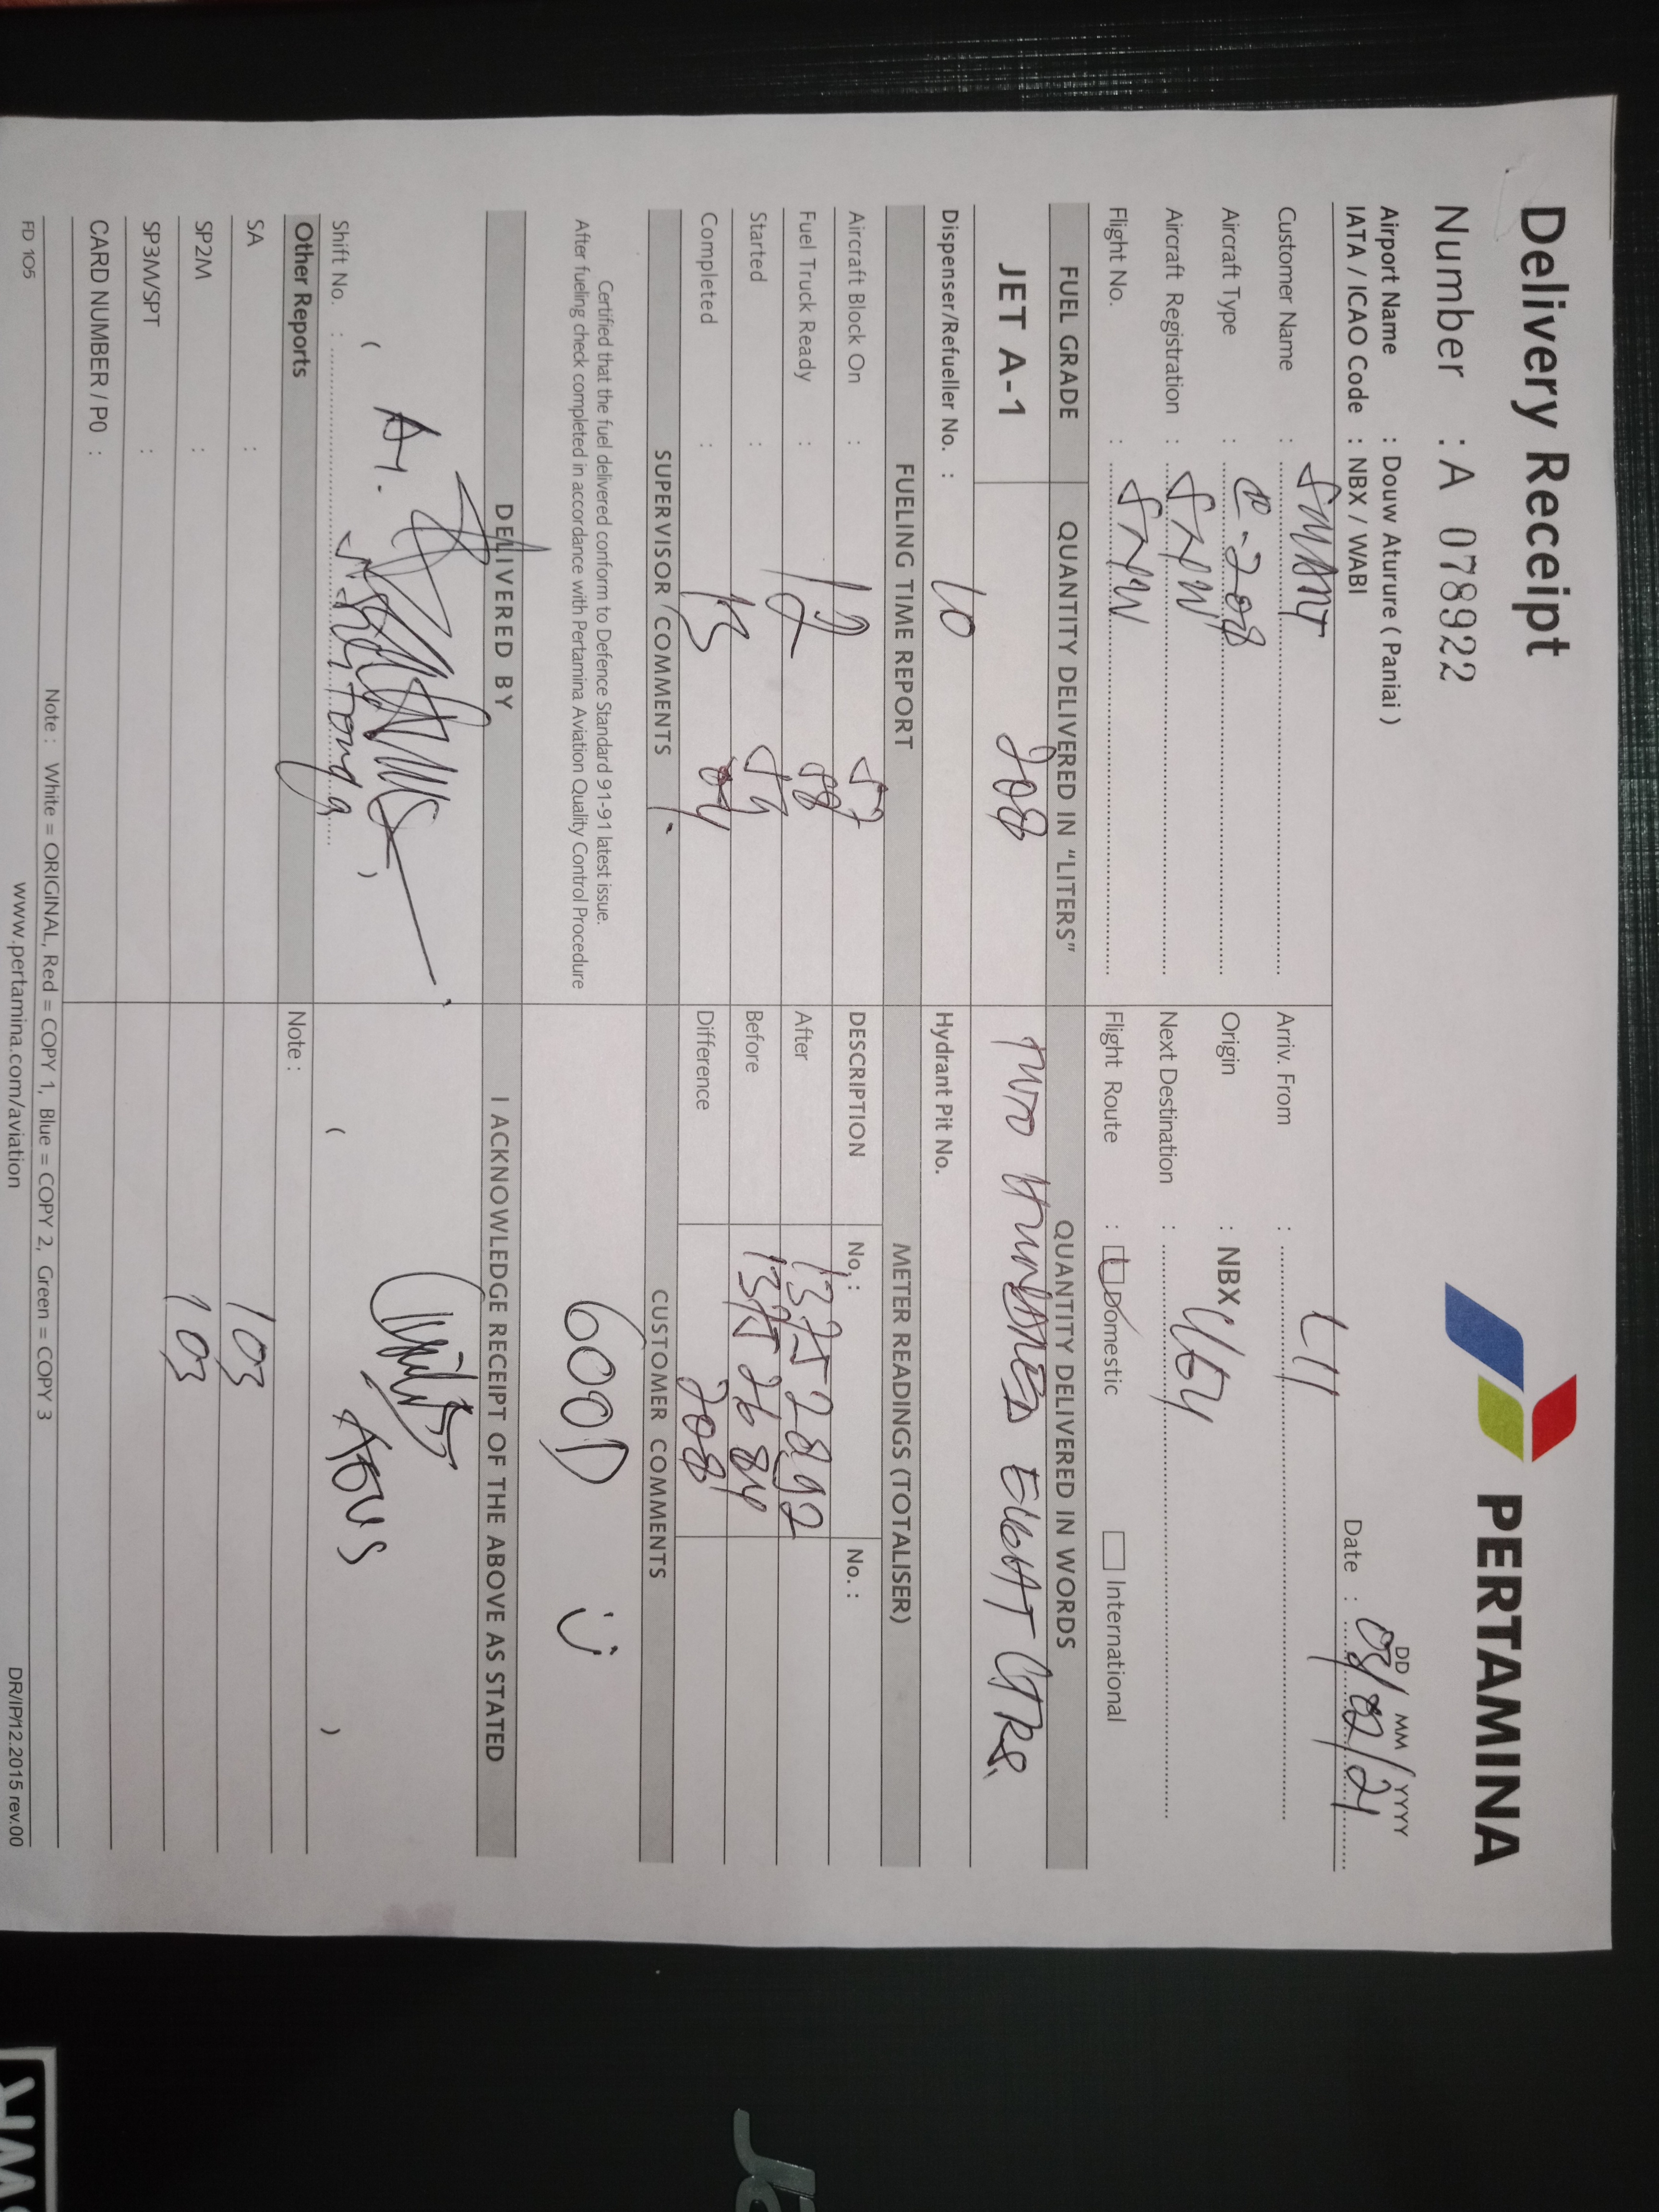 Delivery Receipt
PERTAMINA
Number : A 078922
DD / MM / YYYY
Airport Name : Douw Aturure ( Paniai )
Date : 08/02/21
IATA / ICAO Code : NBX / WABI
Customer Name : SMART
Arriv. From :
Aircraft Type : C-208
Origin : NBX
Aircraft Registration : SNW
Next Destination : UGU
Flight No. : SNW
Flight Route : Domestic International
FUEL GRADE QUANTITY DELIVERED IN "LITERS" QUANTITY DELIVERED IN WORDS
JET A-1 208 TWO HUNDRED EIGHT LTRS.
Dispenser/Refueller No. : 10 Hydrant Pit No.
FUELING TIME REPORT METER READINGS (TOTALISER)
Aircraft Block On : 12 57 DESCRIPTION No. : No. :
Fuel Truck Ready : 58 After 13752892
Started : 12 59 Before 13752684
Completed : 13 04 Difference 208
SUPERVISOR COMMENTS CUSTOMER COMMENTS
Certified that the fuel delivered conform to Defence Standard 91-91 latest issue.
After fueling check completed in accordance with Pertamina Aviation Quality Control Procedure
GOOD
DELIVERED BY I ACKNOWLEDGE RECEIPT OF THE ABOVE AS STATED
AGUS
( ) ( )
Shift No. :
Other Reports Note :
SA : 103
SP2M : 103
SP3M/SPT :
CARD NUMBER / PO :
Note : White = ORIGINAL, Red = COPY 1, Blue = COPY 2, Green = COPY 3
FD 105 www.pertamina.com/aviation DR/IP/12.2015 rev.00